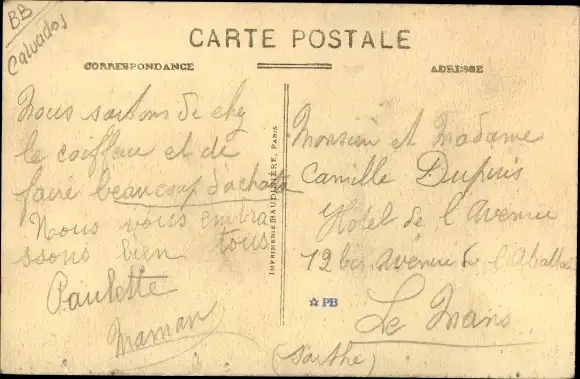 BB
Calvados
CARTE POSTALE
CORRESPONDANCE
ADRESSE
Nous sortons de chez
le coiffeur et de
faire beaucoup d'achats
Nous vous embra
ssons bien tous
Paulette
Maman
IMPRIMERIE BAUDINIÈRE, PARIS
Monsieur et Madame
Camille Dupuis
Hôtel de l'Avenue
12 bis Avenue de l'Abattoir
PB
Le Mans
(Sarthe)